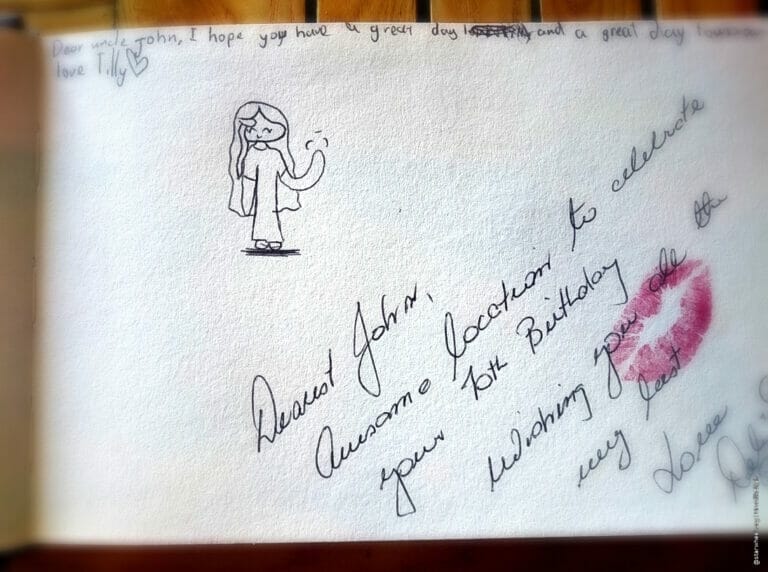 Dear uncle John, I hope you have a great day and a great day tomorrow
love Tilly
Dearest John,
Awsome location to celebrate
your 70th Birthday
wishing you all the
very best
Love